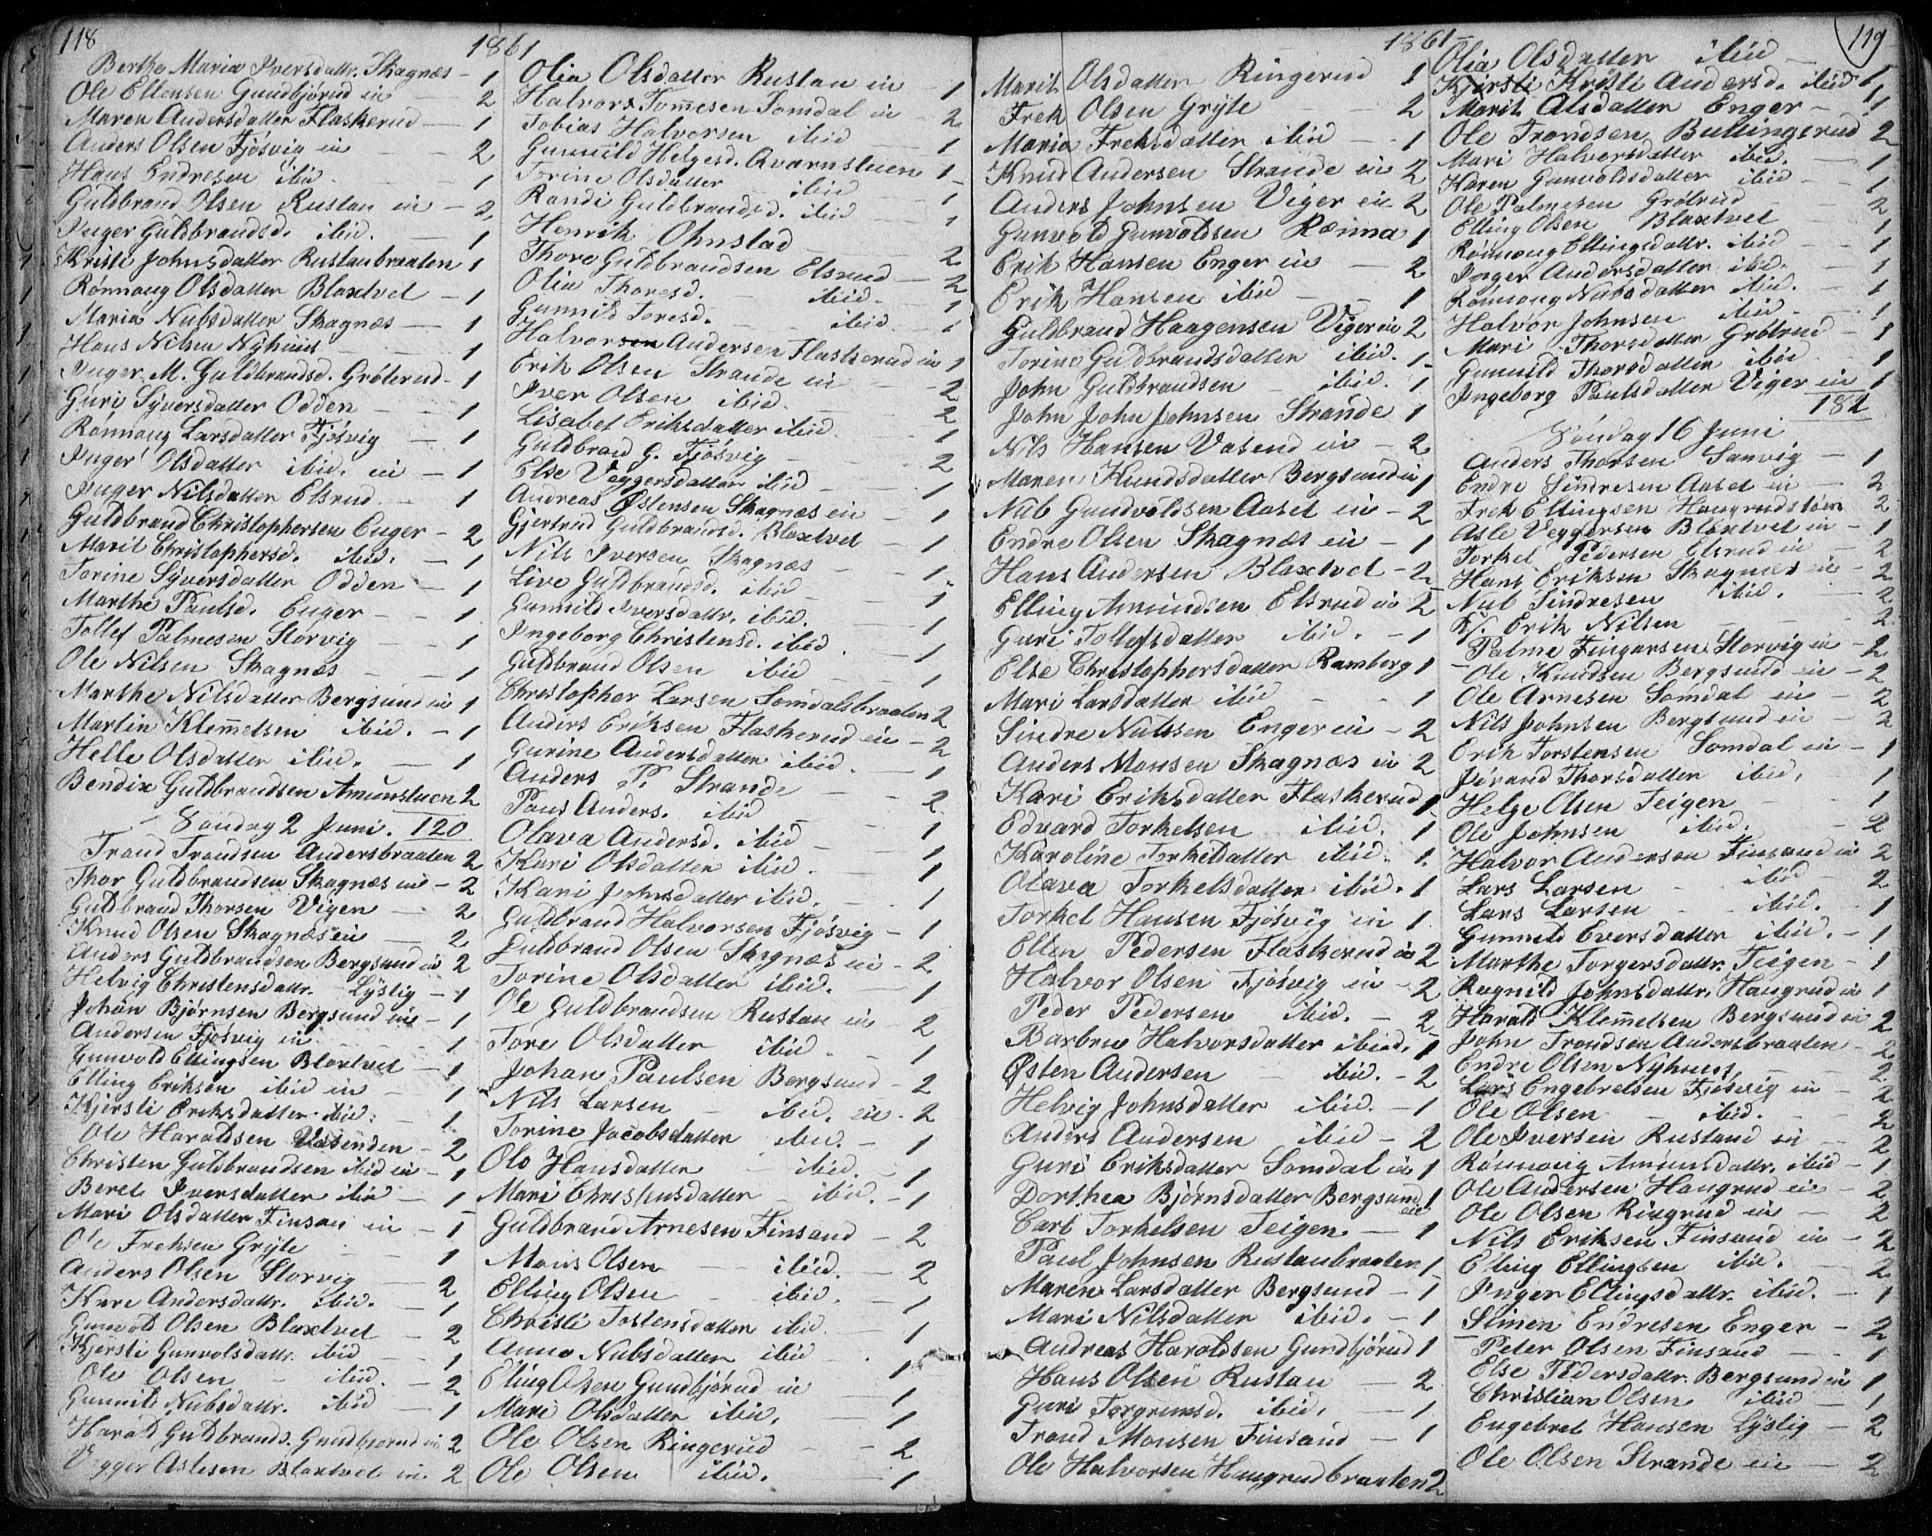 118
1861
Berthe Maria Iversdattr. Skagnæs - 1
Ole Ellensen Gundbjørud ei - 2
Maren Andersdatter Flaskerud - 1
Anders Olsen Fjøsvig ei 2
Hans Endresen ibid - 1
Guldbrand Olsen Rustan ei - 2
Inger Guldbrandsd. ibid. - 1
Kristi Johnsdatter Rustanbraaten 1
Rønnaug Olsdatter Blaxtvet - 1
Maria Nubsdatter Skagnæs - 1
Hans Nilsen Nyhuus - 1
Inger M. Guldbrandsd. Grøterud - 1
Guri Syversdatter Odden - 1
Rønnaug Larsdatter Fjøsvig - 1
Inger Olsdatter ibid. ei - 1
Inger Nilsdatter Elsrud - 1
Guldbrand Christophersen Enger - 2
Marit Christophersd. ibid. - 1
Torine Syversdatter Odden - 1
Marthe Paulsd. Enger - 1
Tollef Palmesen Storvig - 1
Ole Nilsen Skagnæs - 1
Marthe Nilsdatter Bergsund ei 1
Martin Klemetsen ibid. - 1
Helle Olsdatter ibid. - 1
Bendix Guldbrandsen Amunstuen 2
Søndag 2 Juni. 120
Trond Trondsen Andersbraaten 2
Thor Guldbrandsen Skagnæs ei - 2
Guldbrand Thorsen Vigen - 2
Knud Olsen Skagnæs ei - 2
Anders Guldbrandsen Bergsund ei 2
Helvig Christensdattr. Lyslig - 1
Johan Bjørnsen Bergsund ei - 1
Andersen Fjøsvig ei - 1
Gunvold Ellingsen Blaxtvet - 1
Elling Eriksen ibid ei - 1
Kjersti Eriksdatter ibid. 1
Ole Haraldsen Vasenden - 2
Christen Guldbrandsen ibid ei - 1
Beret Iversdatter ibid - 1
Mari Olsdatter Finsan ei - 1
Ole Freksen Gryte - 1
Anders Olsen Storvig - 2
Kari Andersdattr. ibid. - 1
Gunvold Olsen Blaxtvet - 2
Kjersti Gunvolsdattr. ibid - 1
Ole Olsen - ibid. - 2
Gunnild Nubsdattr. ibid - 1
Harald Guldbrands. Gundbjørud ei 2
Vegger Aslesen Blaxtvet ei 2
Olia Olsdatter Rustan ei - 1
Halvors Tomesen Somdal ei - 2
Tobias Halvorsen ibid - 1
Gunnild Helgesd. Qvarnstuen 1
Torine Olsdatter ibid - 1
Randi Guldbrandsd. ibid 1
Henrik Ohnstad - 2
Thore Guldbrandsen Elsrud - 2
Olia Thoresd. - ibid - 1
Gunnild Toresd. ibid. 1
Halvorsen Andersen Flaskerud ei 1
Erik Olsen Strande ei - 2
Iver Olsen ibid - 2
Lisabet Eriksdatter ibid. 1
Guldbrand G. Fjøsvig - 2
Else Veggersdatter ibid - 1
Andreas Østensen Skagnæs ei - 1
Gjertrud Guldbrandsd. Blaxtvet - 1
Nils Iversen Skagnæs - 1
Live Guldbrandsd. ibid - 1
Gunnild Iversdattr. ibid. 1
Ingeborg Christensd. ibid. - 1
Guldbrand Olsen ibid - 1
Christopher Larsen Somdalsbraaten 2
Anders Eriksen Flaskerud ei - 2
Gurine Andersdatter ibid. - 1
Anders P. Strande - 2
Paul Anders. ibid - 1
Olava Andersd. ibid - 1
Kari Olsdatter ibid. - 1
Kari Johnsdatter ibid. - 1
Guldbrand Halvorsen Fjøsvig - 1
Guldbrand Olsen Skagnæs ei - 2
Torine Olsdatter ibid. - 1
Ole Guldbrandsen Rustan ei - 2
Tore Olsdatter ibid. - 1
Johan Paulsen Bergsund - 2
Nils Larsen - ibid. ei - 2
Torine Jacobsdatter ibid. - 1
Ole Hansdatter - ibid. - 1
Mari Christensdatter - ibid. - 1
Guldbrand Arnesen Finsand - 2
Mons Olsen - ibid. 2
Elling Olsen - ibid. - 1
Christi Tostensdatter ibid. - 1
Anne Nubsdatter ibid - 1
Eling Olsen Gundbjørud ei - 1
Mari Olsdatter ibid. - 1
Ole Olsen Ringerud - 2
Ole Olsen ibid. - 1
119
1861
Marit Olsdatter Ringerud 1
Frek Olsen Gryte - 2
Maria Freksdatter ibid - 1
Knud Andersen Strande ei 2
Anders Johnsen Viger ei 2
Gunvold Gunvoldsen Rænna 1
Erik Hansen Enger ei - 2
Erik Hansen ibid - 1
Guldbrand Haagensen Viger ei 2
Torine Guldbrandsdatter ibid. 1
John Guldbrandsen - ibid. 1
John John Johnsen Strande 1
Nils Hansen Vasend ei - 2
Maren Knudsdatter Bergsund ei 1
Nub Gundvoldsen Aaset ei - 2
Endre Olsen Skagnæs ei - 1
Hans Andersen Blaxtvet - 2
Elling Amundsen Elsrud ei 2
Guri Tollefsdatter ibid. - 1
Else Christophersdatter Ramberg 1
Mari Larsdatter ibid - 1
Sindre Nubsen Enger ei - 2
Anders Monsen Skagnæs ei 2
Kari Eriksdatter Flaskerud 1
Edvard Torkelsen ibid. 1
Karoline Torkildatter ibid. 1
Olava Torkelsdatter ibid. 1
Torkel Hansen Fjøsvig ei 1
Ellen Pedersen Flaskerud ei 2
Halvor Olsen Fjøsvig ei - 2
Peder Pedersen ibid. - 2
Barbru Halvorsdatter ibid. 1
Østen Andersen ibid. - 2
Helvig Johnsdatter ibid. - 1
Anders Andersen ibid - 2
Guri Eriksdatter Somdal ei 1
Dorthea Bjørnsdatter Bergsund ei 1
Carl Torkelsen Teigen - 1
Paul Johnsen Rustanbraaten 1
Maren Larsdatter Bergsund - 1
Mari Nilsdatter ibid. - 1
Andreas Haraldsen Gundbjørud 1
Hans Olsen Rustan - 2
Guri Torgrimsd. ibid. - 1
Trond Monsen Finsand - 1
Ole Halvorsen Haugrudbraaten 2
Olia Olsdatter ibid - 1
Kjersti Kristi Andersd. ibid 1
Marit Alsdatter Enger - 1
Ole Trondsen Bullingerud 2
Mari Halvorsdatter ibid. - 1
Karen Gunvoldsdatter ibid - 1
Ole Palmesen Grøtrud - 2
Elling Olsen Blaxtvet - 1
Rønnaug Ellingsdattr. ibid - 1
Inger Andersdatter ibid. - 1
Rønnaug Nubsdatter ibid. - 1
Halvor Johnsen ibid - 1
Mari Thorsdatter Grøtrud - 1
Gunnild Thorsdatter ibid - 1
Ingeborg Paulsdatter Viger ei 1
182
Søndag 16 Juni
Anders Thorsen Sanvig - 1
Endre Sindresen Aaset ei - 2
Frek Ellingsen Haugrudstøen 2
Asle Veggersen Blaxtvet ei - 1
Torkel Pedersen Elsrud ei - 2
Hans Eriksen Skagnæs ei - 2
Nub Sindresen ibid. - 2
Erik Nilsen - 2
Palme Fingarsen Storvig ei - 2
Ole Knudsen Bergsund ei - 2
Ole Arnesen Somdal ei - 2
Nils Johnsen Bergsund ei - 2
Erik Torstensen Somdal ei - 1
Jørand Thorsdatter ibid. 1
Helge Olsen Teigen - 1
Ole Johnsen ibid. - 2
Halvor Andersen Finsand ei 2
Lars Larsen ibid - 2
Lars Larsen - ibid. - 1
Gunnild Eversdatter ibid. - 1
Marthe Torgersdattr. Teigen - 1
Ragnild Johnsdattr. Haugrud ei 1
Harald Klemetsen Bergsund ei 2
John Trondsen Andersbraaten - 2
Endre Olsen Nyhuus, - 2
Lars Engebretsen Fjøsvig ei - 2
Ole Olsen - ibid. - 2
Ole Iversen Rustand ei - 2
Rønnaug Amunsdattr. ibid - 1
Ole Andersen Haugrud ei - 2
Ole Olsen Ringrud ei - 2
Nils Eriksen Finsand ei - 2
Eling Ellingsen ibid. 2
Inger Ellingsdattr. ibid. - 1
Simen Endresen Enger - 2
Peter Olsen Finsand - 1
Else Pedersdattr. Bergsund ei 1
Christian Olsen ibid - 1
Engebret Hansen Lyslig - 2
Ole Olsen Strande ei - 2